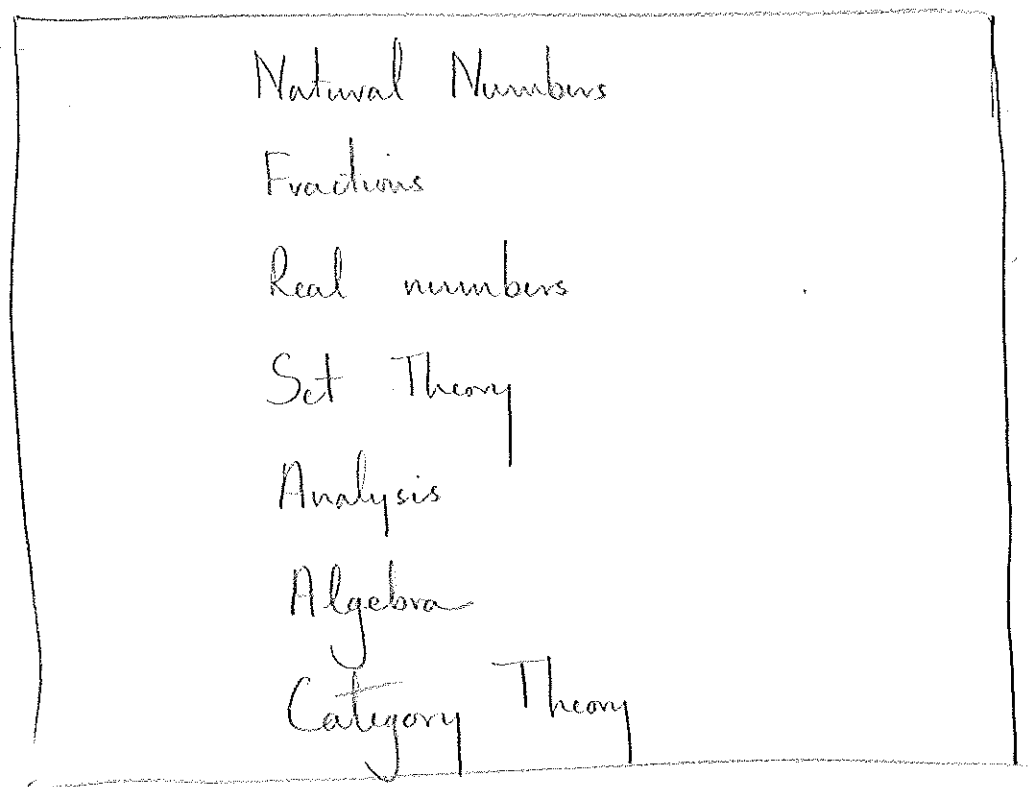 Natural Numbers
Fractions
Real numbers
Set Theory
Analysis
Algebra
Category Theory